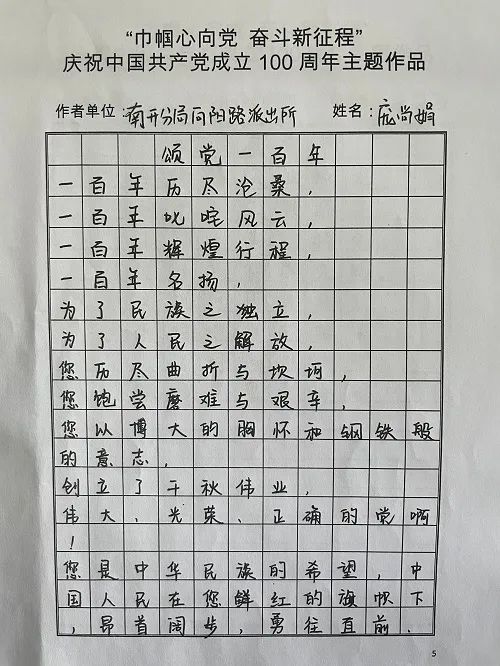 “巾帼心向党 奋斗新征程”
庆祝中国共产党成立 100 周年主题作品
作者单位：南开分局向阳路派出所 姓名：庞尚娟
颂党一百年
一百年历尽沧桑，
一百年叱咤风云，
一百年辉煌行程，
一百年名扬，
为了民族之独立，
为了人民之解放，
您历尽曲折与坎坷，
您饱尝磨难与艰辛，
您以博大的胸怀和钢铁般
的意志，
创立了千秋伟业，
伟大、光荣、正确的党啊
！
您是中华民族的希望，中
国人民在您鲜红的旗帜下
，昂首阔步，勇往直前．
5